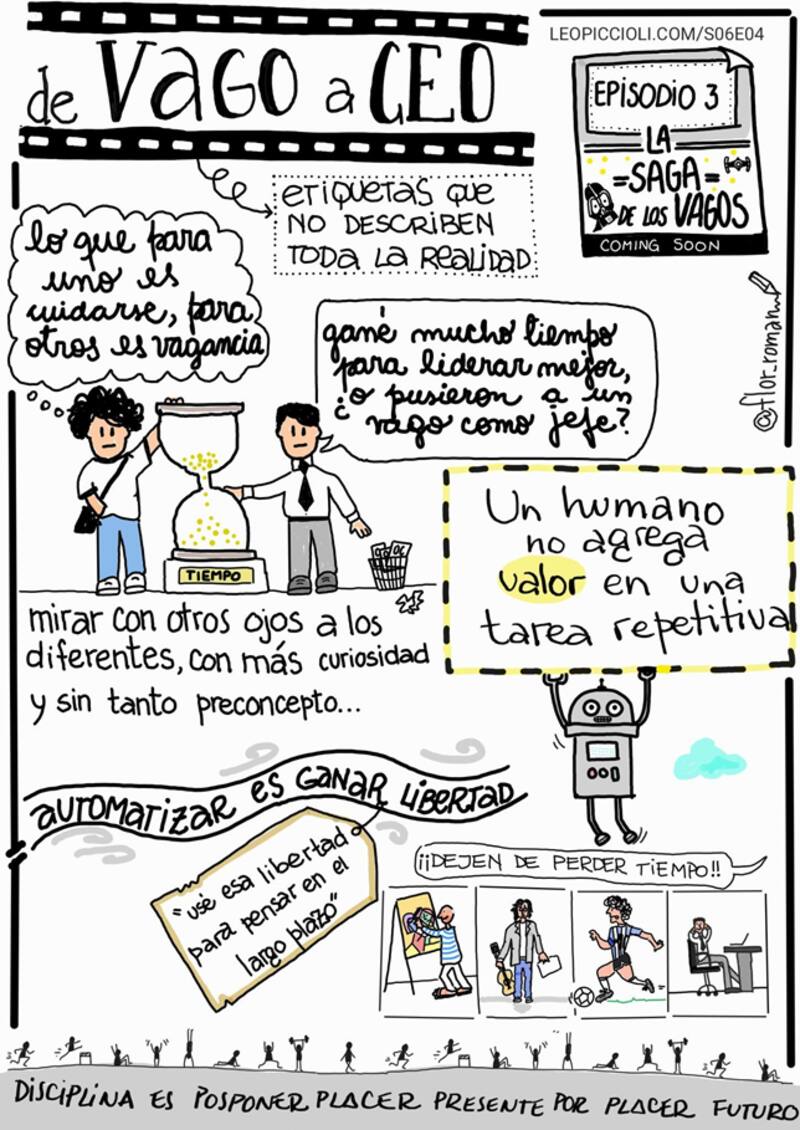 LEOPICCIOLI.COM/S06E04
de VAGO a CEO
EPISODIO 3
LA
=SAGA=
DE LOS VAGOS
COMING SOON
ETIQUETAS QUE
NO DESCRIBEN
TODA LA REALIDAD
lo que para
uno es
cuidarse, para
otros es vagancia
gané mucho tiempo
para liderar mejor,
¿o pusieron a un
vago como jefe?
@flor_roman
TIEMPO
Un humano
no agrega
valor en una
tarea repetitiva
mirar con otros ojos a los
diferentes, con más curiosidad
y sin tanto preconcepto...
AUTOMATIZAR ES GANAR LIBERTAD
"usé esa libertad
para pensar en el
largo plazo"
¡¡DEJEN DE PERDER TIEMPO!!
DISCIPLINA ES POSPONER PLACER PRESENTE POR PLACER FUTURO